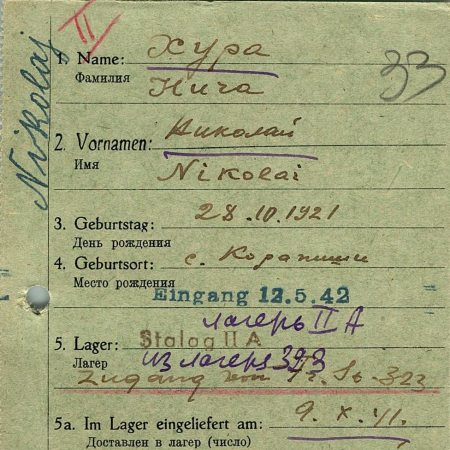 Nikolaj
II
33
1. Name: Хура
Фамилия Нича
2. Vornamen: Николай
Имя Nikolai
3. Geburtstag: 28.10.1921
День рождения
4. Geburtsort: с. Корапиши
Место рождения
Eingang 12.5.42
лагерь II A
5. Lager: Stalag II A
Лагерь из лагеря 323
Zugang von 323
5a. Im Lager eingeliefert am: 9. X. 41.
Доставлен в лагерь (число)